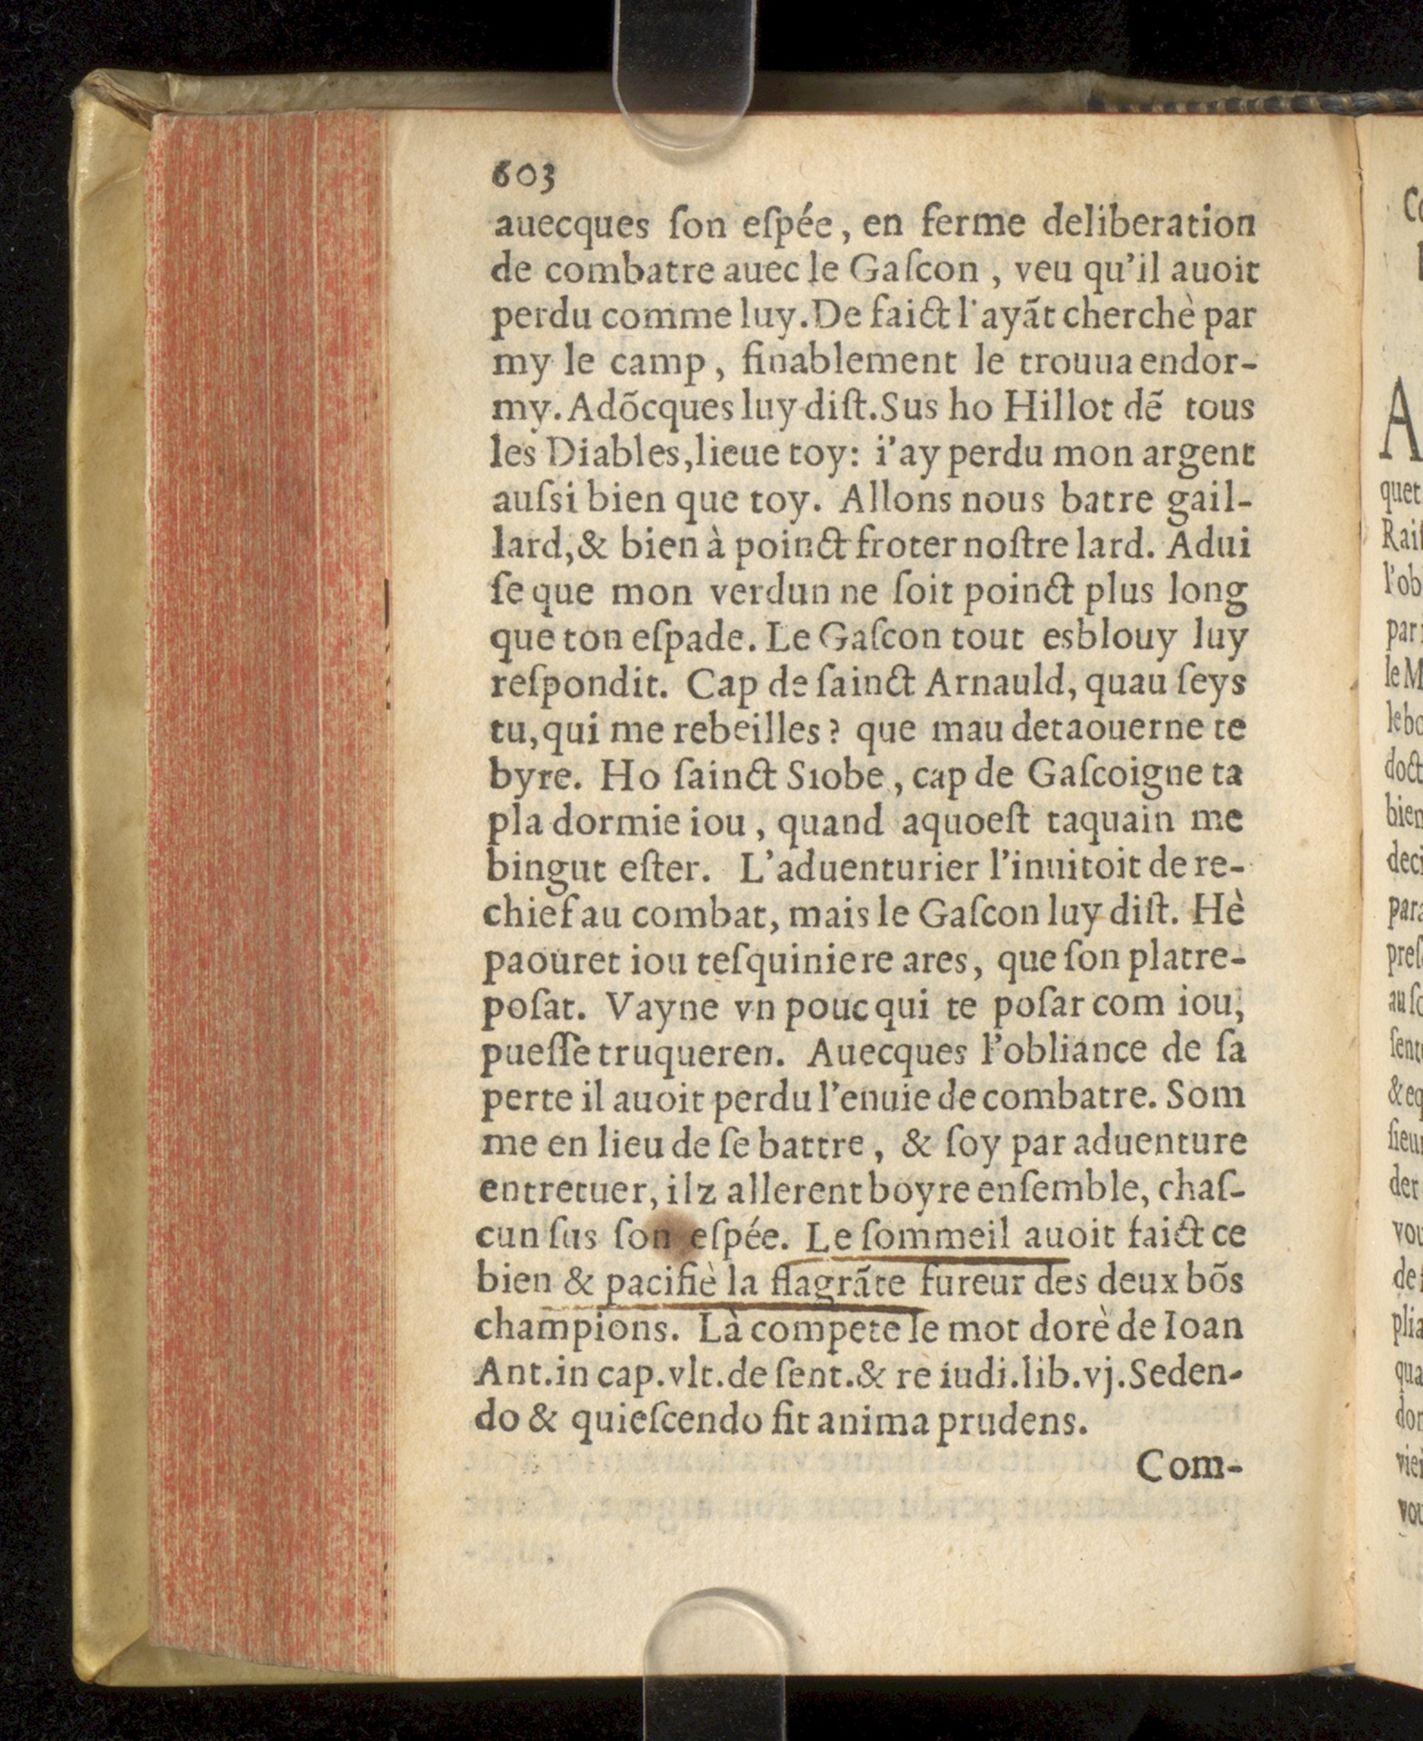 603
auecques ſon eſpée, en ferme deliberation
de combatre auec le Gaſcon, veu qu'il auoit
perdu comme luy. De faict l'ayãt cherchè par
my le camp, finablement le trouua endor-
my. Adõcques luy diſt. Sus ho Hillot dẽ tous
les Diables, lieue toy: i'ay perdu mon argent
auſsi bien que toy. Allons nous batre gail-
lard, & bien à poinct froter noſtre lard. Adui
ſe que mon verdun ne ſoit poinct plus long
que ton eſpade. Le Gaſcon tout esblouy luy
reſpondit. Cap de ſainct Arnauld, quau ſeys
tu, qui me rebeilles? que mau detaouerne te
byre. Ho ſainct Sıobe, cap de Gaſcoigne ta
pla dormie iou, quand aquoeſt taquain me
bingut eſter. L'aduenturier l'inuitoit de re-
chief au combat, mais le Gaſcon luy diſt. Hè
paouret iou teſquiniere ares, que ſon platre-
poſat. Vayne vn pouc qui te poſar com iou,
pueſſe truqueren. Auecques l'obliance de ſa
perte il auoit perdu l'enuie de combatre. Som
me en lieu de ſe battre, & ſoy par aduenture
entretuer, ilz allerent boyre enſemble, chaſ-
cun ſus ſon eſpée. Le ſommeil auoit faict ce
bien & pacifiè la flagrãte fureur des deux bõs
champions. Là compete le mot dorè de Ioan
Ant. in cap. vlt. de ſent. & re iudi. lib. vj. Seden-
do & quieſcendo fit anima prudens.
Com-
A
quet
l'ob
par
le M
doct
bien
deci
para
preſ
der
vou
plia
qua
vou